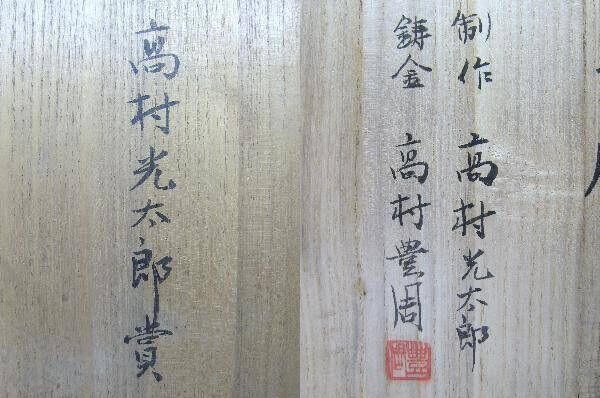 高村光太郎賞
制作 高村光太郎
鋳金 高村豊周